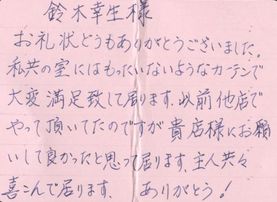 鈴木幸生様
お礼状どうもありがとうございました。
私共の室にはもったいないようなカーテンで
大変満足致して居ります、以前他店で
やって頂いてたのですが貴店様にお願
いして良かったと思って居ります、主人共々
喜こんで居ります、 ありがとう!